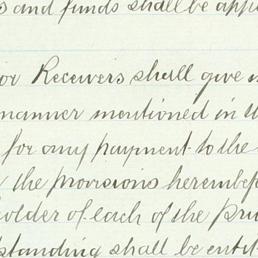 s and funds shall be app
or Receivers shall give
manner mentioned in th
for any payment to the
the provisions herembef
holder of each of the
standing shall be entit